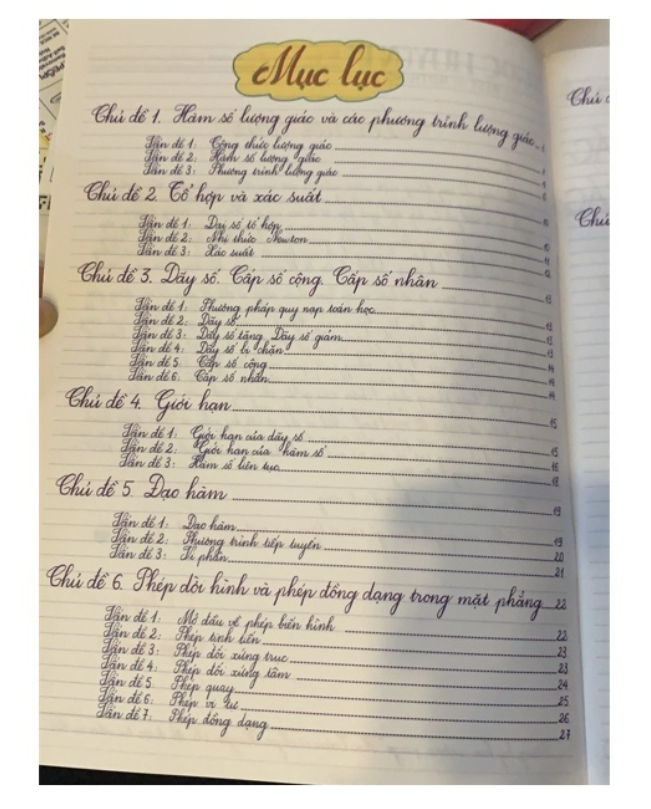 Mục lục
Chủ đề 1. Hàm số lượng giác và các phương trình lượng giác 1
Vấn đề 1: Công thức lượng giác 1
Vấn đề 2: Hàm số lượng giác
Vấn đề 3: Phương trình lượng giác
Chủ đề 2. Tổ hợp và xác suất
Vấn đề 1: Đại số tổ hợp
Vấn đề 2: Nhị thức Newton
Vấn đề 3: Xác suất 12
Chủ đề 3. Dãy số. Cấp số cộng. Cấp số nhân 13
Vấn đề 1: Phương pháp quy nạp toán học
Vấn đề 2: Dãy số
Vấn đề 3: Dãy số tăng Dãy số giảm 13
Vấn đề 4: Dãy số bị chặn 13
Vấn đề 5: Cấp số cộng 14
Vấn đề 6: Cấp số nhân 14
Chủ đề 4. Giới hạn 15
Vấn đề 1: Giới hạn của dãy số 15
Vấn đề 2: Giới hạn của hàm số 16
Vấn đề 3: Hàm số liên tục 18
Chủ đề 5. Đạo hàm 19
Vấn đề 1: Đạo hàm 19
Vấn đề 2: Phương trình tiếp tuyến 20
Vấn đề 3: Vi phân 21
Chủ đề 6. Phép dời hình và phép đồng dạng trong mặt phẳng 22
Vấn đề 1: Mở đầu về phép biến hình 22
Vấn đề 2: Phép tịnh tiến 23
Vấn đề 3: Phép đối xứng trục 23
Vấn đề 4: Phép đối xứng tâm 24
Vấn đề 5: Phép quay 25
Vấn đề 6: Phép vị tự 26
Vấn đề 7: Phép đồng dạng 27
Chủ
Chủ